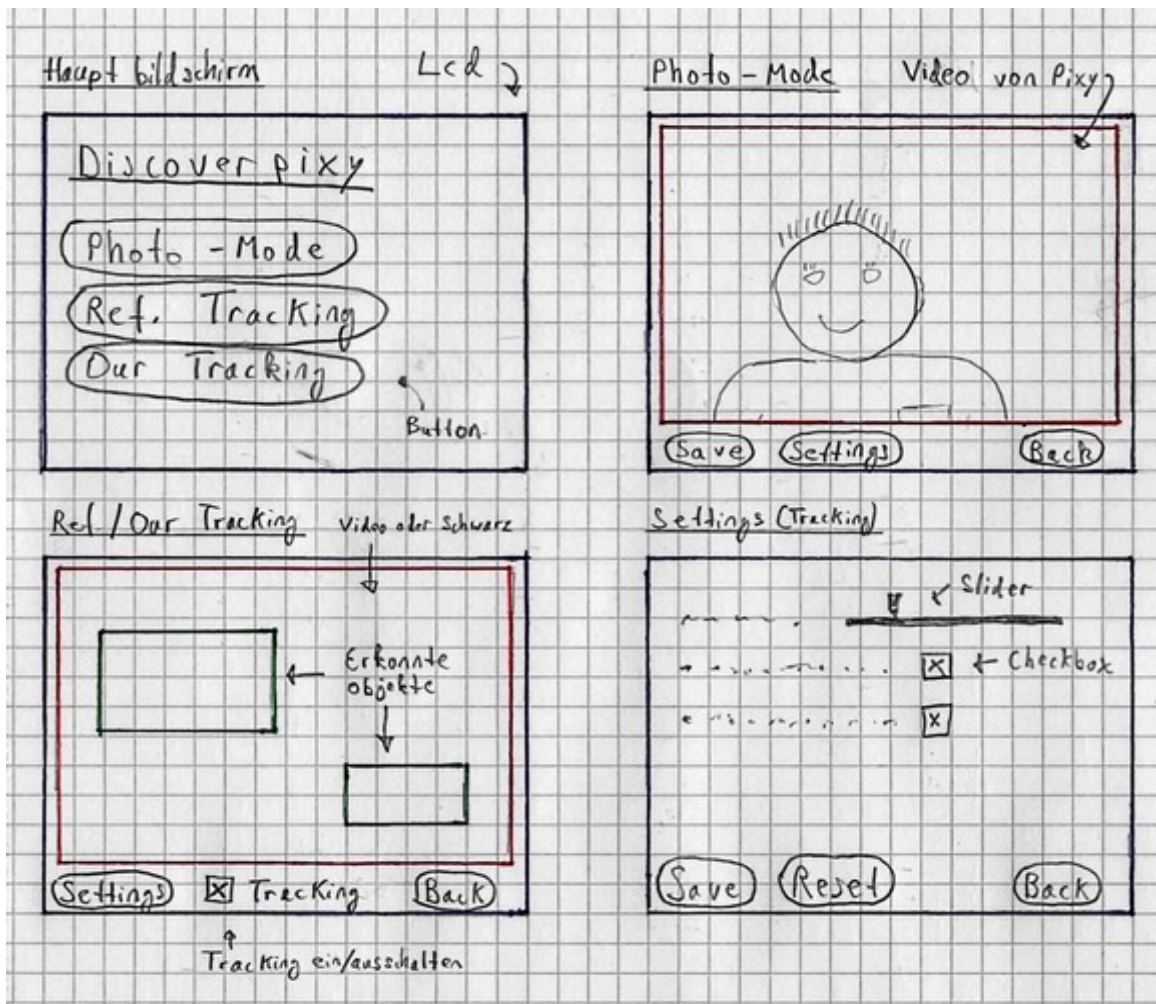 Hauptbildschirm
Lcd
Discover pixy
Photo - Mode
Ref. Tracking
Our Tracking
Button
Photo - Mode
Video von Pixy
Save
Settings
Back
Ref. / Our Tracking
Video oder Schwarz
Erkonnte
objekte
Settings
Tracking
Back
Tracking ein/ausschalten
Settings (Tracking)
Slider
Checkbox
Save
Reset
Back